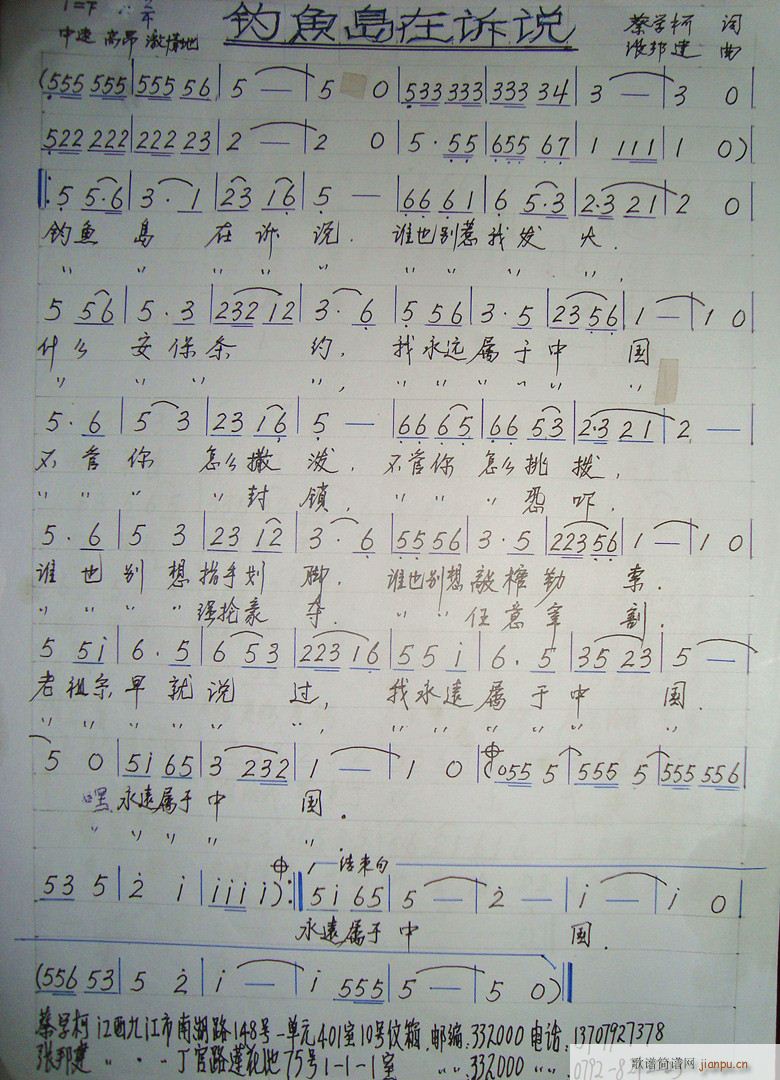 1=F 2/4 钓魚島在诉说 蔡学柯 词
中速 高昂 激情地 张邦建 曲
(555 555|555 56|5 —|5 0|533 333|333 34|3 —|3 0
522 222|222 23|2 —|2 0|5·55|655 67|1 111|1 0)
|:5 5·6|3·1|23 16|5 —|66 61|6 5·3|2·3 21|2 0
钓魚 島 在诉 说. 谁也别惹我发 火.
" " " " " " " " "
5 56|5·3|232 12|3·6|5 56|3·5|23 56|1 —|1 0
什么 安保条 约, 我永远属于中 国
" " " " , " " " " " " "
5·6|5 3|23 16|5 —|66 65|66 53|2·3 21|2 —
不管你 怎么撒 泼, 不管你 怎么挑 拨,
" " " " 封 锁, " " " " 恐 吓.
5·6|5 3|23 12|3·6|55 56|3·5|223 56|1 —|1 0
谁也别想指手划 脚, 谁也别想敲榨勒 索.
" " " " 强抢豪 夺. " " 任意宰 割.
5 5i|6·5|6 53|223 16|55 i|6·5|35 23|5 —
老祖宗早就说 过, 我永遠属于中 国.
" " " " " " " , " " " " " " "
5 0|5i 65|3 232|1 —|1 0|(055 5|555 5|555 556
嘿 永遠属于 中 国.
" " " " " " "
53 5|2 i|iii i):|5i 65|5 —|2 —|i —|i 0
结束句
永遠属于 中 国.
(556 53|5 2|i —|i 555|5 —|5 0)
蔡学柯 江西九江市南湖路148号一单元401室10号仪箱.邮编:332000 电话:13707927378
张邦建 " · · 丁官路莲花池75号1-1-1室 "" 332000 "": 0792-82
歌谱简谱网 jianpu.cn